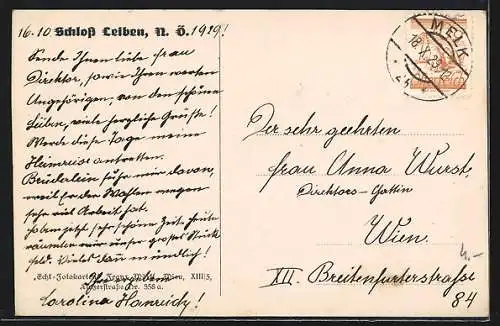 16.10. Schloß Leiben, N. Ö. 1929!
Sende Ihnen liebe Frau
Direktor, sowie Ihren werten
Angehörigen, von dem schönen
Leiben, viele herzliche Grüsse!
Werde diese Tage meine
Heimreise antretten.
Brüderlein fuhr mir davon,
weil Er der Wahlen wegen
sehr viel Arbeit hat.
haben jetzt sehr schöne Zeit, heute
unser großes Stück
feld. Vieles dann mündlich!
Echt-Fotokarte Franz Wien, XIII/5,
straße Nr. 358a.
Carolina Hanreich!
MELK
18.X.29
Der sehr geehrten
Frau Anna Wurst,
Direktors-Gattin
Wien.
XII. Breitenfurterstrasse
84
4.-